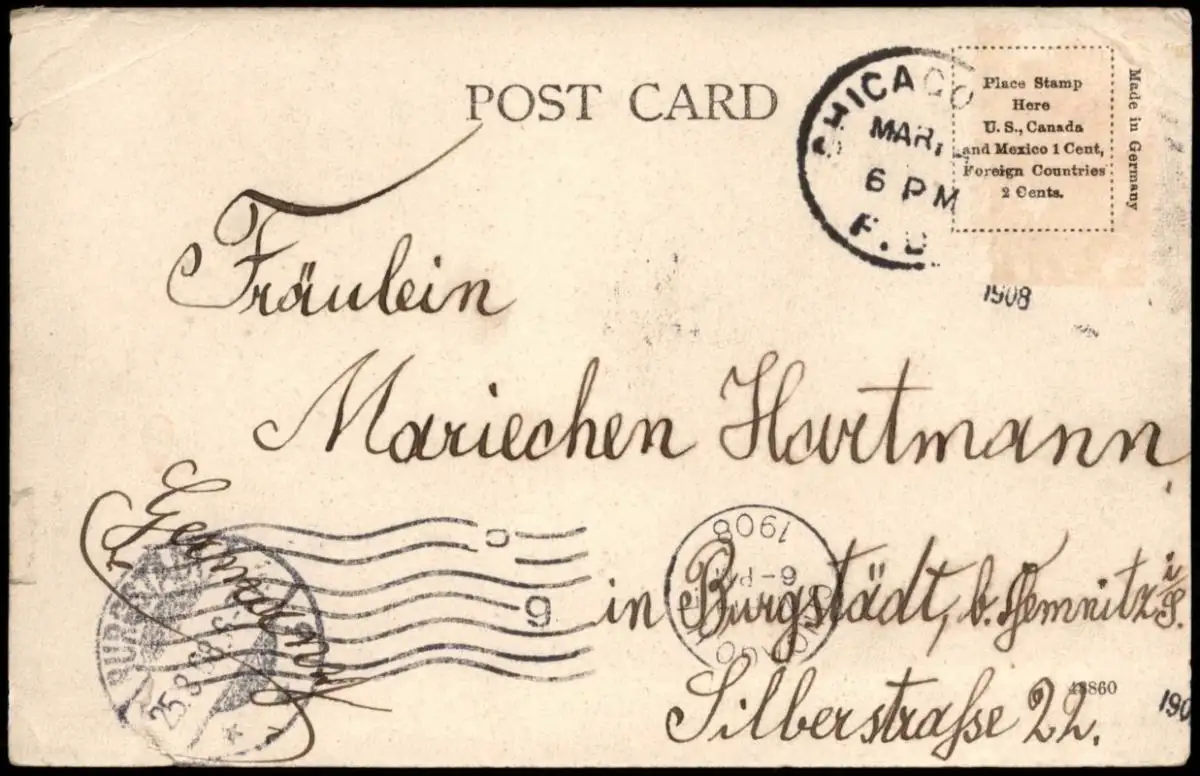 POST CARD
CHICAGO
MAR.
6 PM
Place Stamp
Here
U.S., Canada
and Mexico 1 Cent,
Foreign Countries
2 Cents.
Made in Germany
1908
Fräulein
Mariechen Hartmann,
Germany
in Burgstädt, b. Chemnitz i/S.
Silberstraße 22.
1908
6-PM
9
25.3.
48860
190